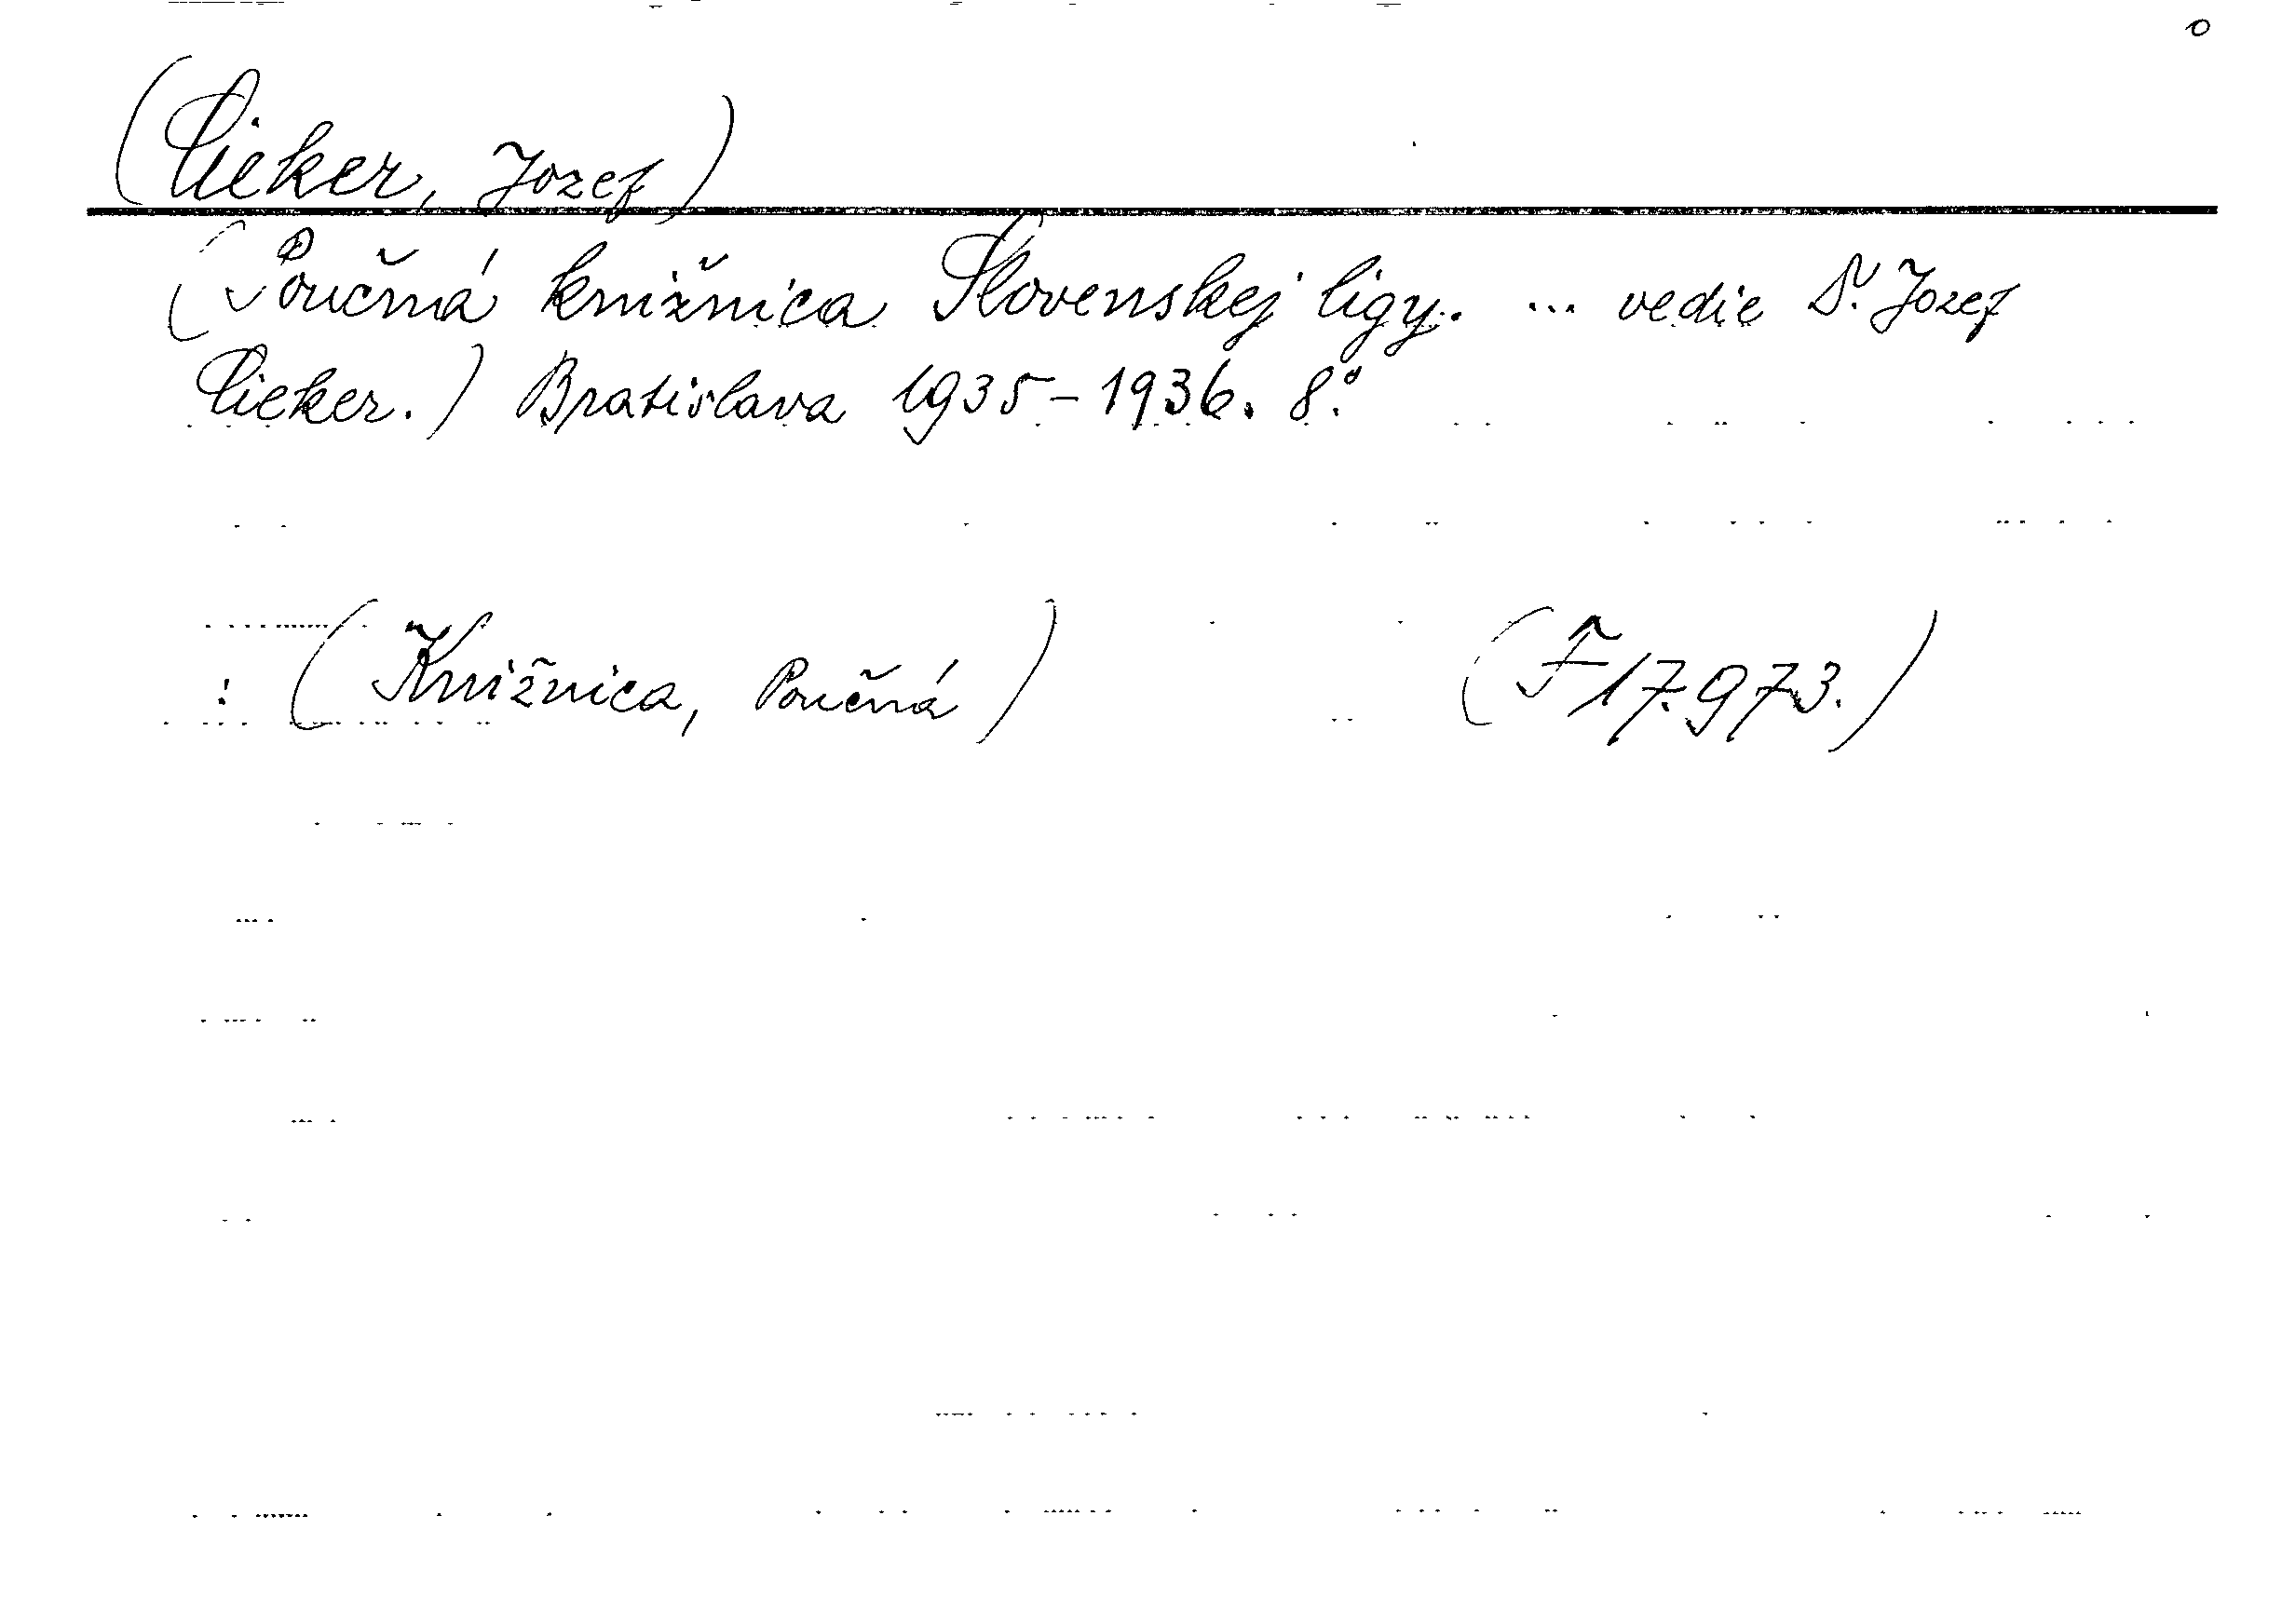 o
(Cieker, Jozef)
(Poučná knižnica Slovenskej ligy. ... vedie Dr. Jozef
Cieker.) Bratislava 1935-1936. 8.°
: (Knižnica, Poučná) (F 17.973.)